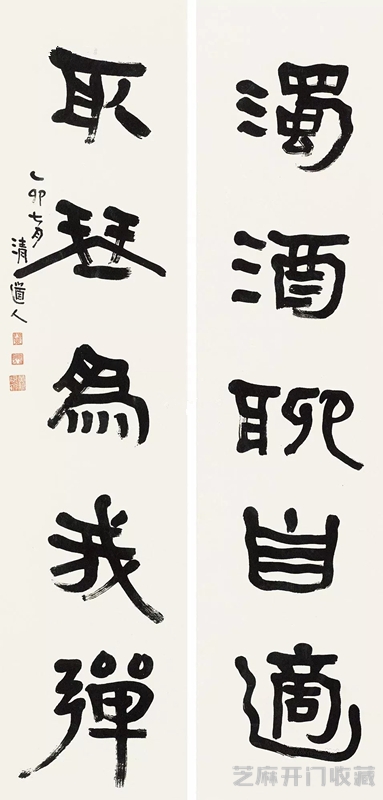 濁酒聊自適
取琴為我彈
乙卯七月
清道人
芝麻开门收藏